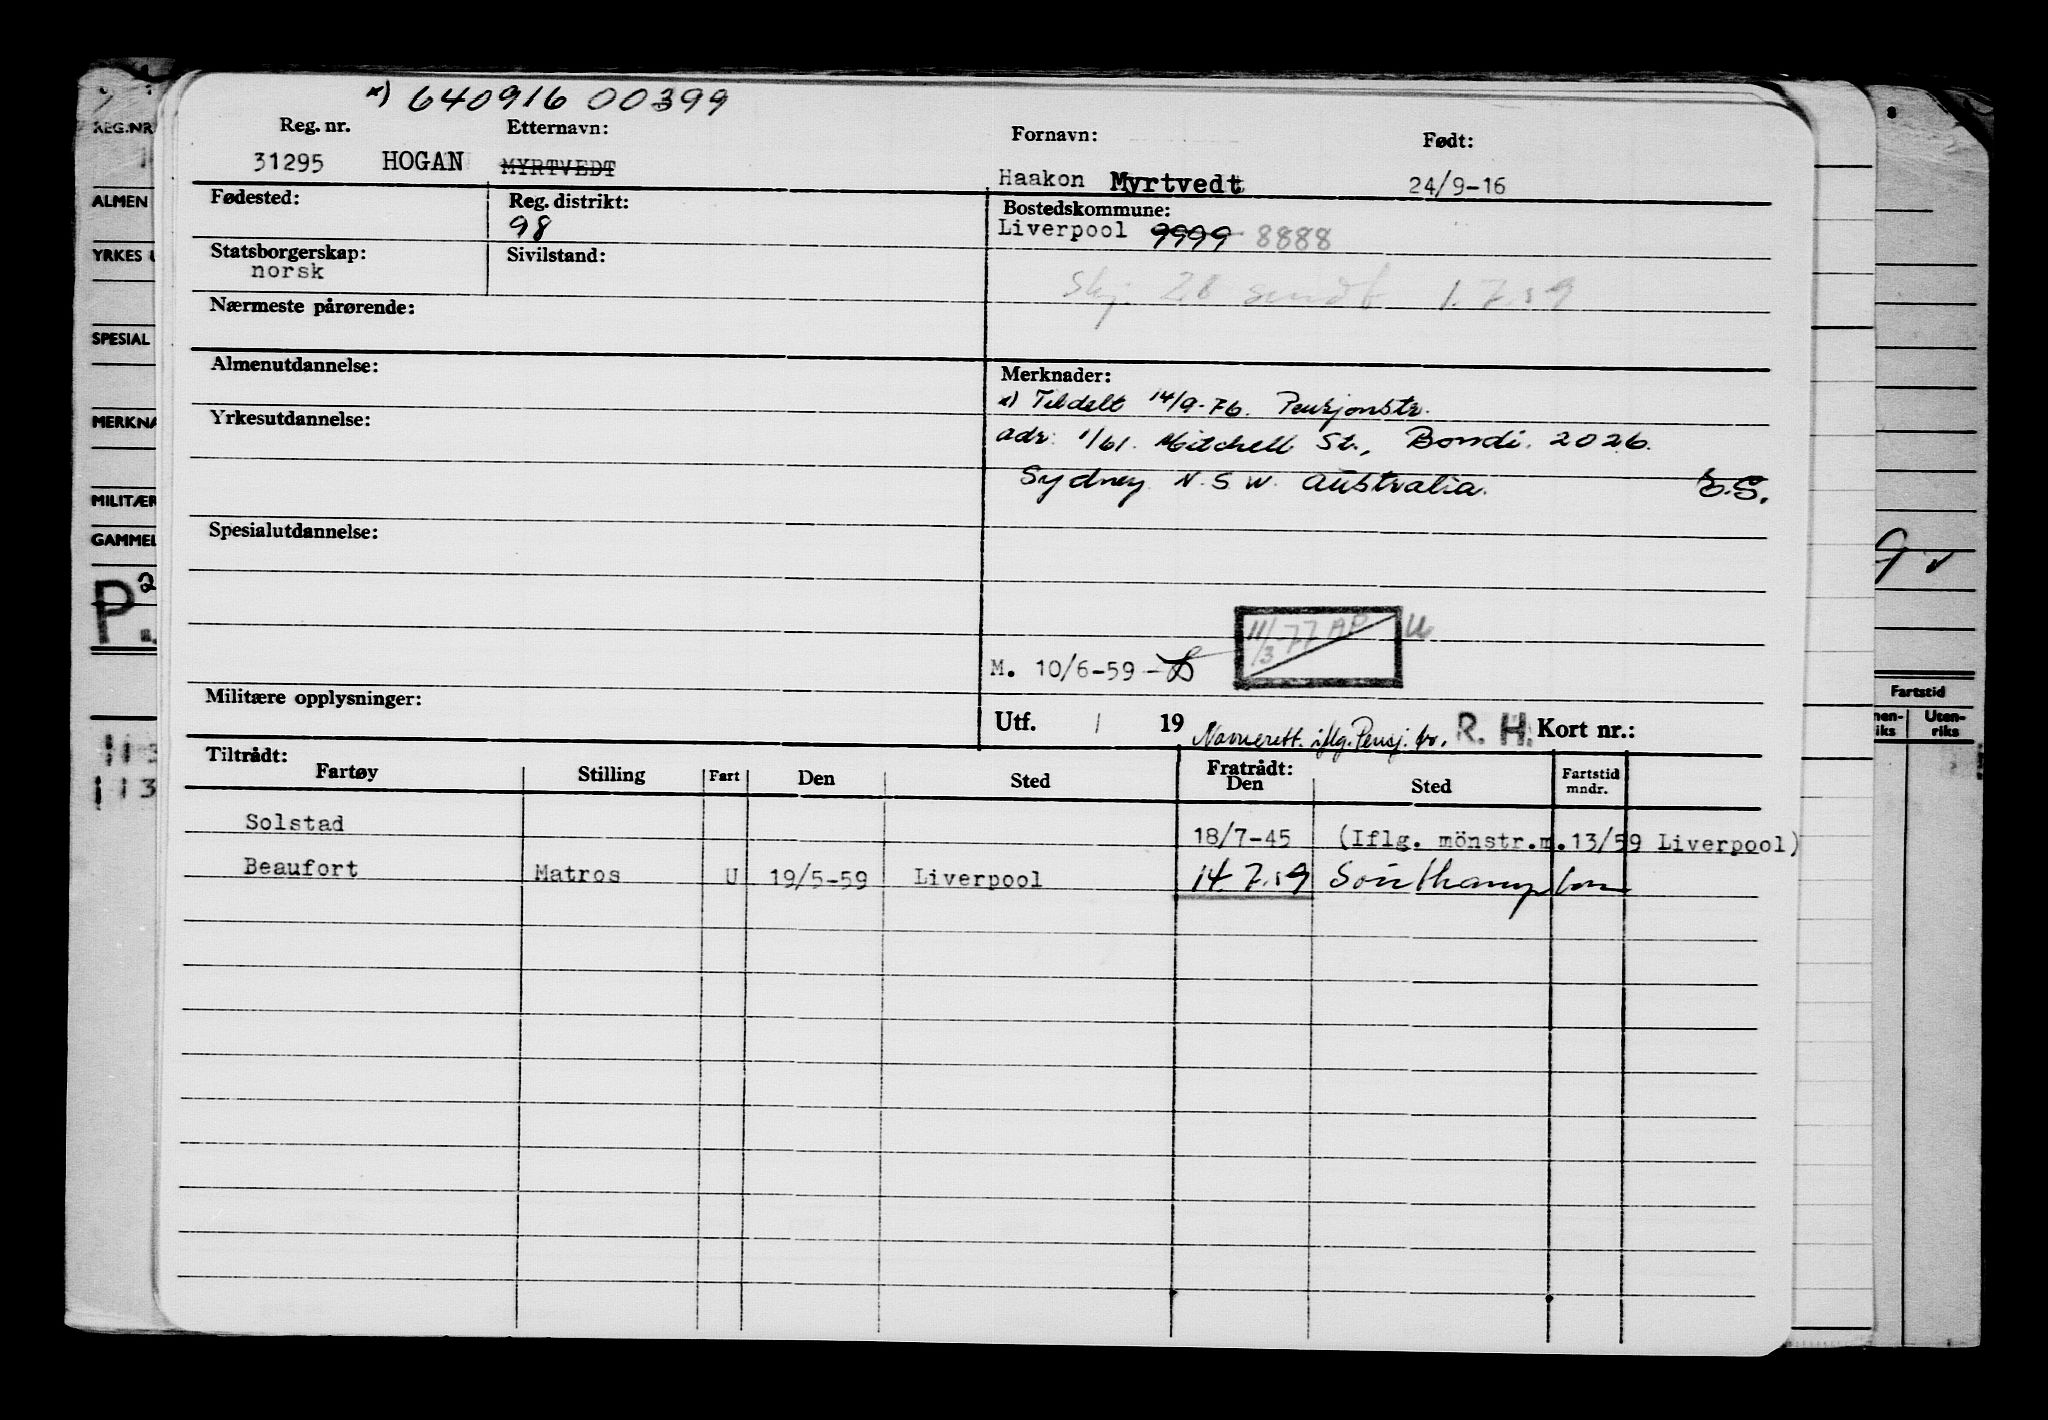 *) 640916 00399
Reg. nr. Etternavn: Fornavn: Født:
31295 HOGAN MYRTVEDT Haakon Myrtvedt 24/9-16
Fødested: Reg. distrikt: Bostedskommune:
98 Liverpool 9999 8888
Statsborgerskap: Sivilstand:
norsk
Skj. 28 sendt 1.7.59
Nærmeste pårørende:
Almenutdannelse: Merknader:
*) Tildelt 14/9-76. Pensjonstr.
Yrkesutdannelse: adr: 1/61. Mitchell St., Bondi. 2026.
Sydney N.S.W. Australia. E.S.
Spesialutdannelse:
11/3-77 AP
M. 10/6-59 -
Militære opplysninger:
Utf. / 19 Navnerett. iflg. Pensj. tr. R. H. Kort nr.:
Tiltrådt: Fratrådt:
Fartøy Stilling Fart Den Sted Den Sted Fartstid mndr.
Solstad 18/7-45 (Iflg. mönstr.m.13/59 Liverpool)
Beaufort Matros U 19/5-59 Liverpool 14.7.59 Southampton
REG.NR
ALMEN
YRKES
SPESIAL
MERKNA
MILITÆR
GAMMEL
P. 2
Fartstid
Uten-
riks